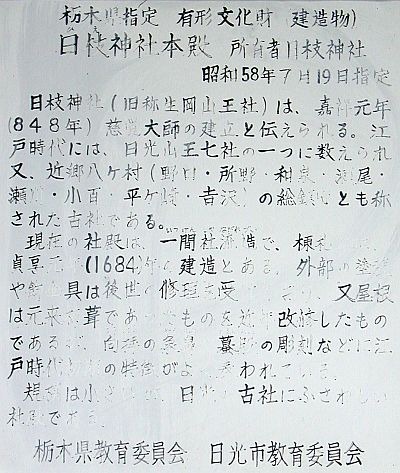 栃木県指定 有形文化財(建造物)
日枝神社本殿 所有者日枝神社
昭和58年7月19日指定
日枝神社(旧称生岡山王社)は、嘉祥元年
(848年)慈覚大師の建立と伝えられる。江
戸時代には、日光山王七社の一つに数えられ
又、近郷八ケ村(野口・所野・和泉・瀬尾・
瀬川・小百・平ケ崎・吉沢)の総鎮守とも称
された古社である。
現在の社殿は、一間社流造で、棟札
貞享元年(1684)年の建造とある。外部の塗
や 具は後世の修理を受 又屋根
は元来 葺であ ものを近年改修したもの
である 向拝の 墓股の彫刻などに江
戸時代 の特徴がよ 
規模は小 日光 古社にふさわしい
社殿である。
栃木県教育委員会 日光市教育委員会